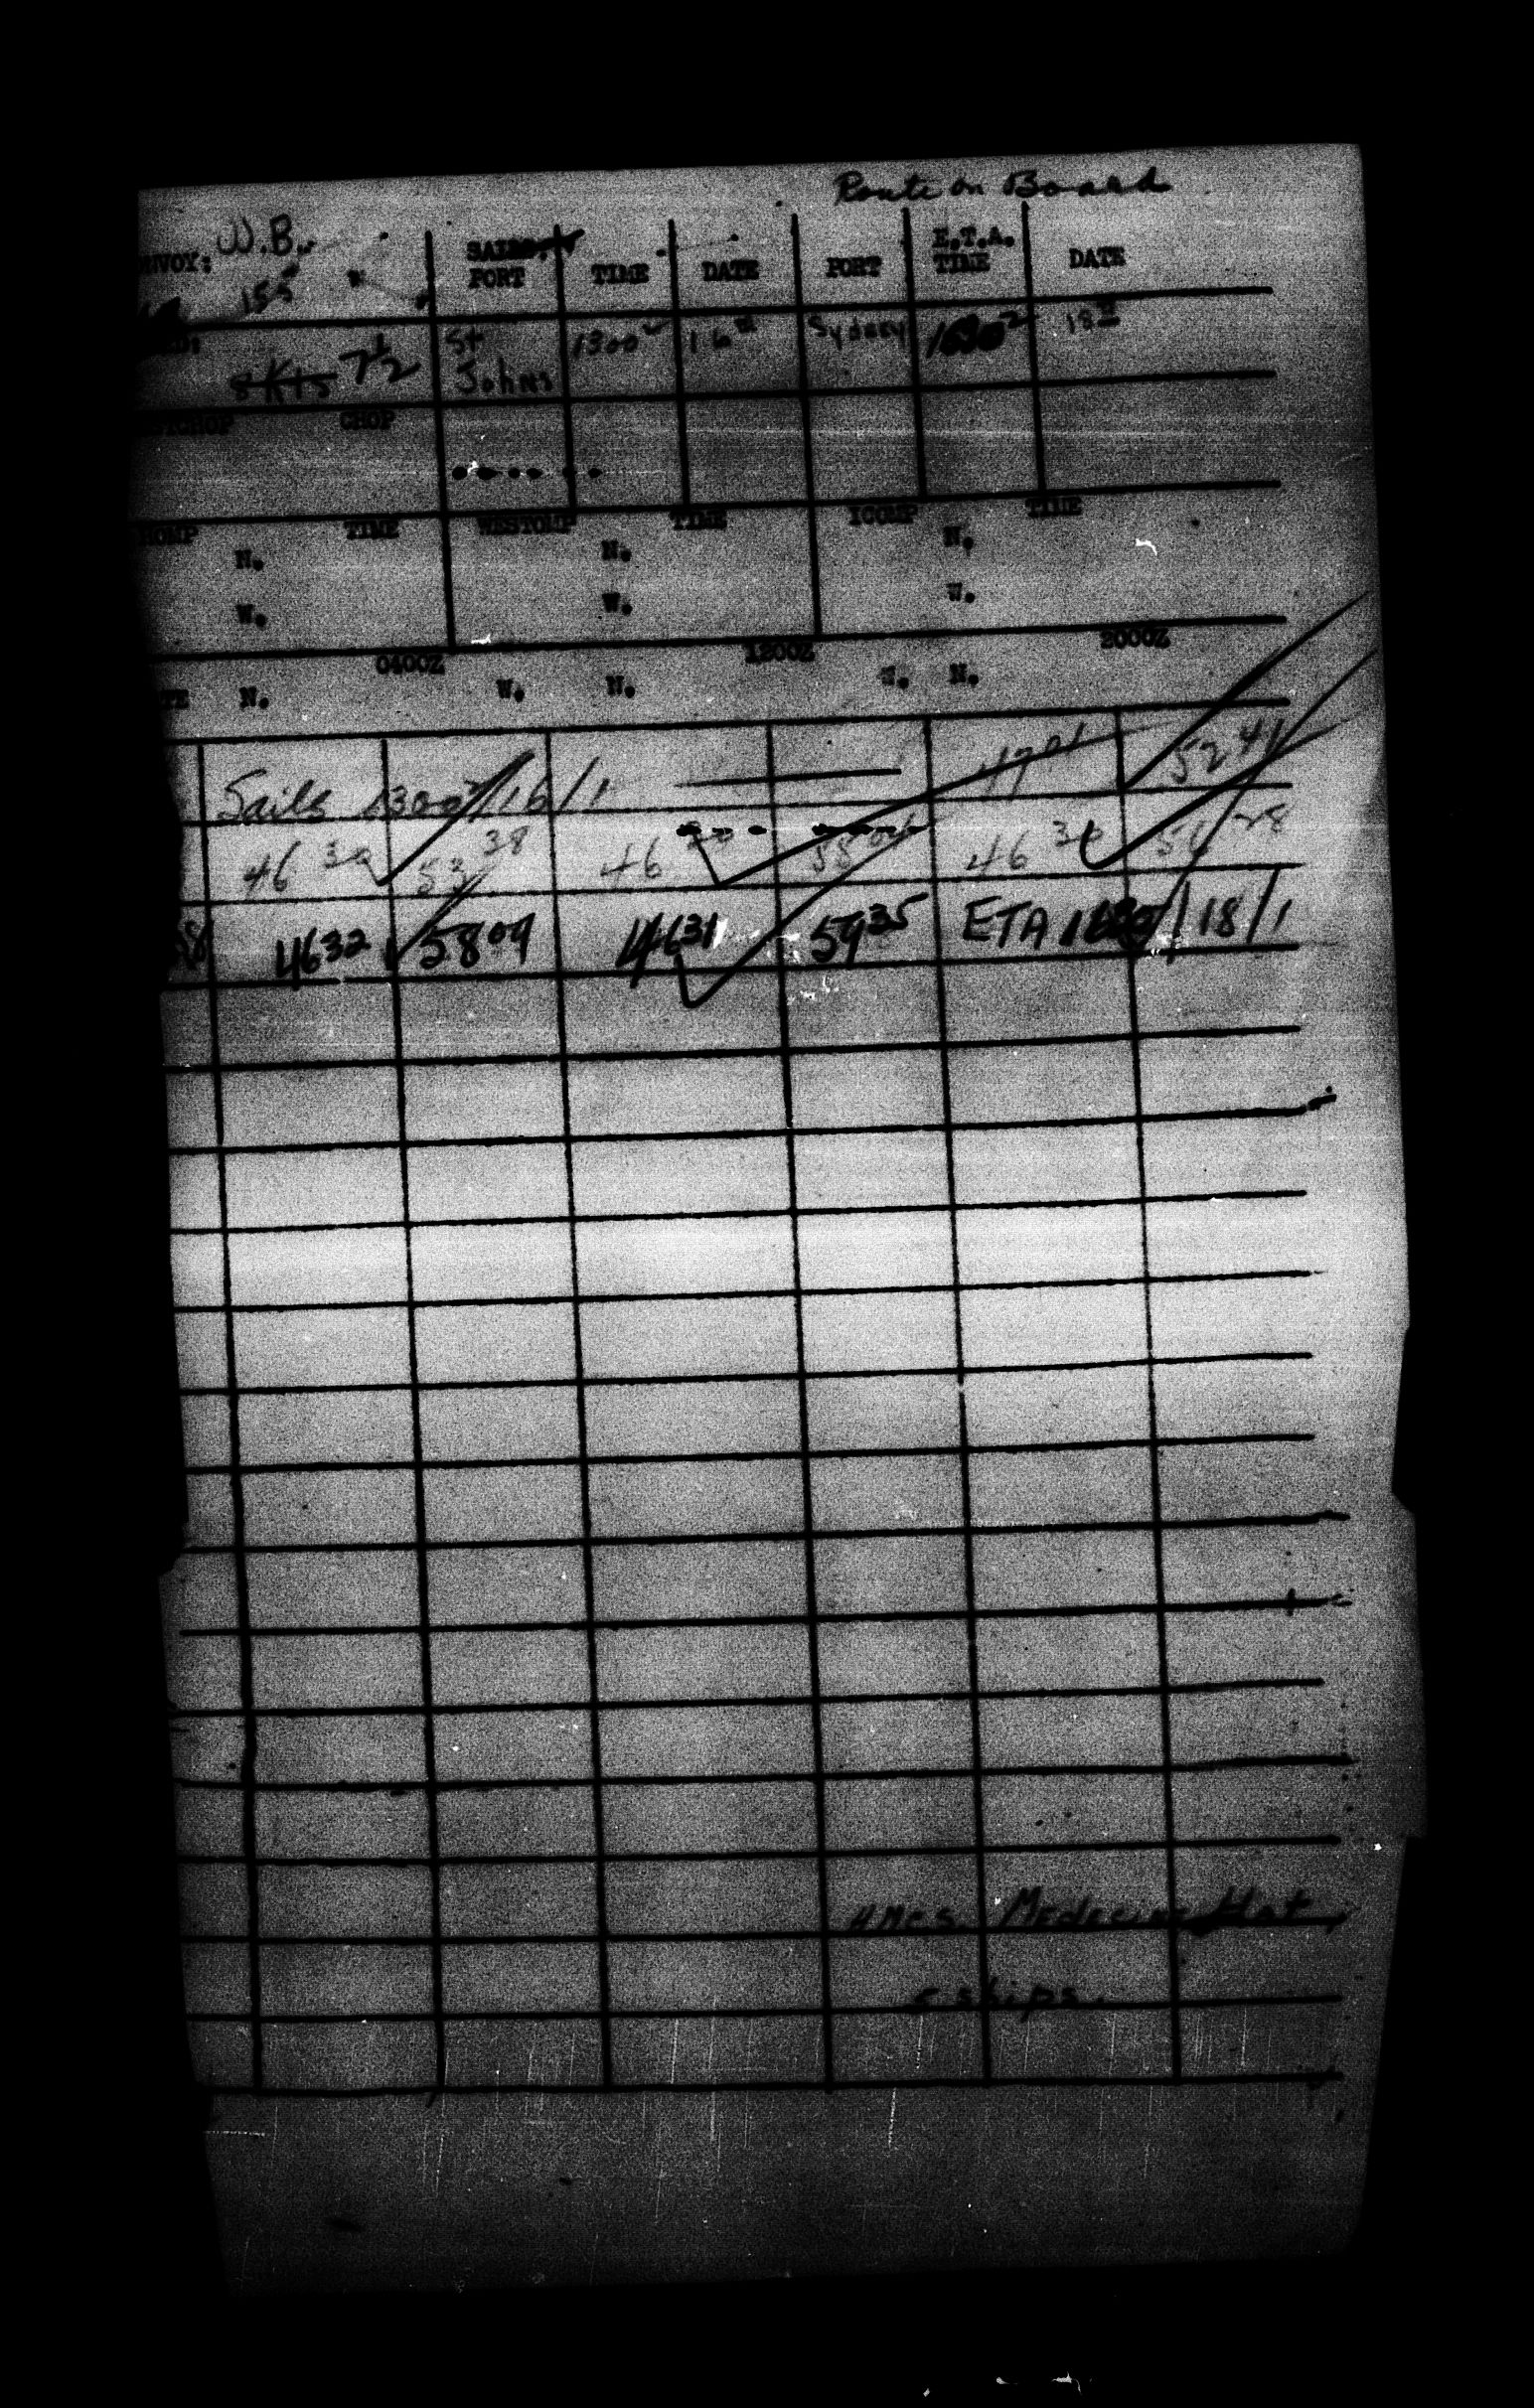 Route on Board
NVOY: W.B. SAILS E.T.A.
155 PORT TIME DATE PORT TIME DATE
ED: 8 Kts 7½ St Johns 1300Z 16th Sydney 1630Z 18th
STCHOP CHOP
HOMP TIME WESTOMP TIME ICOMP TIME
N. N. N.
W. W. W.
0400Z 1200Z 2000Z
TE N. W. N. W. N.
Sails 1300Z/16/1 4701 5241
46 30 53 38 46 46 30
18 46 32 58 09 46 31 59 35 ETA 1630/18/1
HMCS Medecine Hat
5 ships.